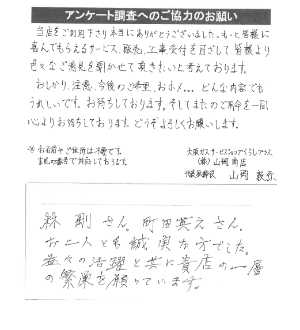 アンケート調査へのご協力のお願い
当店をご利用下さり本当にありがとうございました。もっと皆様に
喜んでもらえるサービス、販売、工事受付を目ざして皆様より
色々なご意見を聞かせて頂きたいと考えております。
おしかり、注意、今後のご希望、おホメ… どんな内容でも
うれしいです。お待ちしております。そしてまたのご用命を一同
心よりお待ちしております。どうぞよろしくお願いします。
※お名前やご住所は不要です。
大阪ガスサービスショップくらしプラザさん
(株)山岡商店
山岡
森 剛さん。町田英文さん。
お二人とも誠実な方でした。
益々の活躍と共に貴店の一層
の繁栄を願っています。